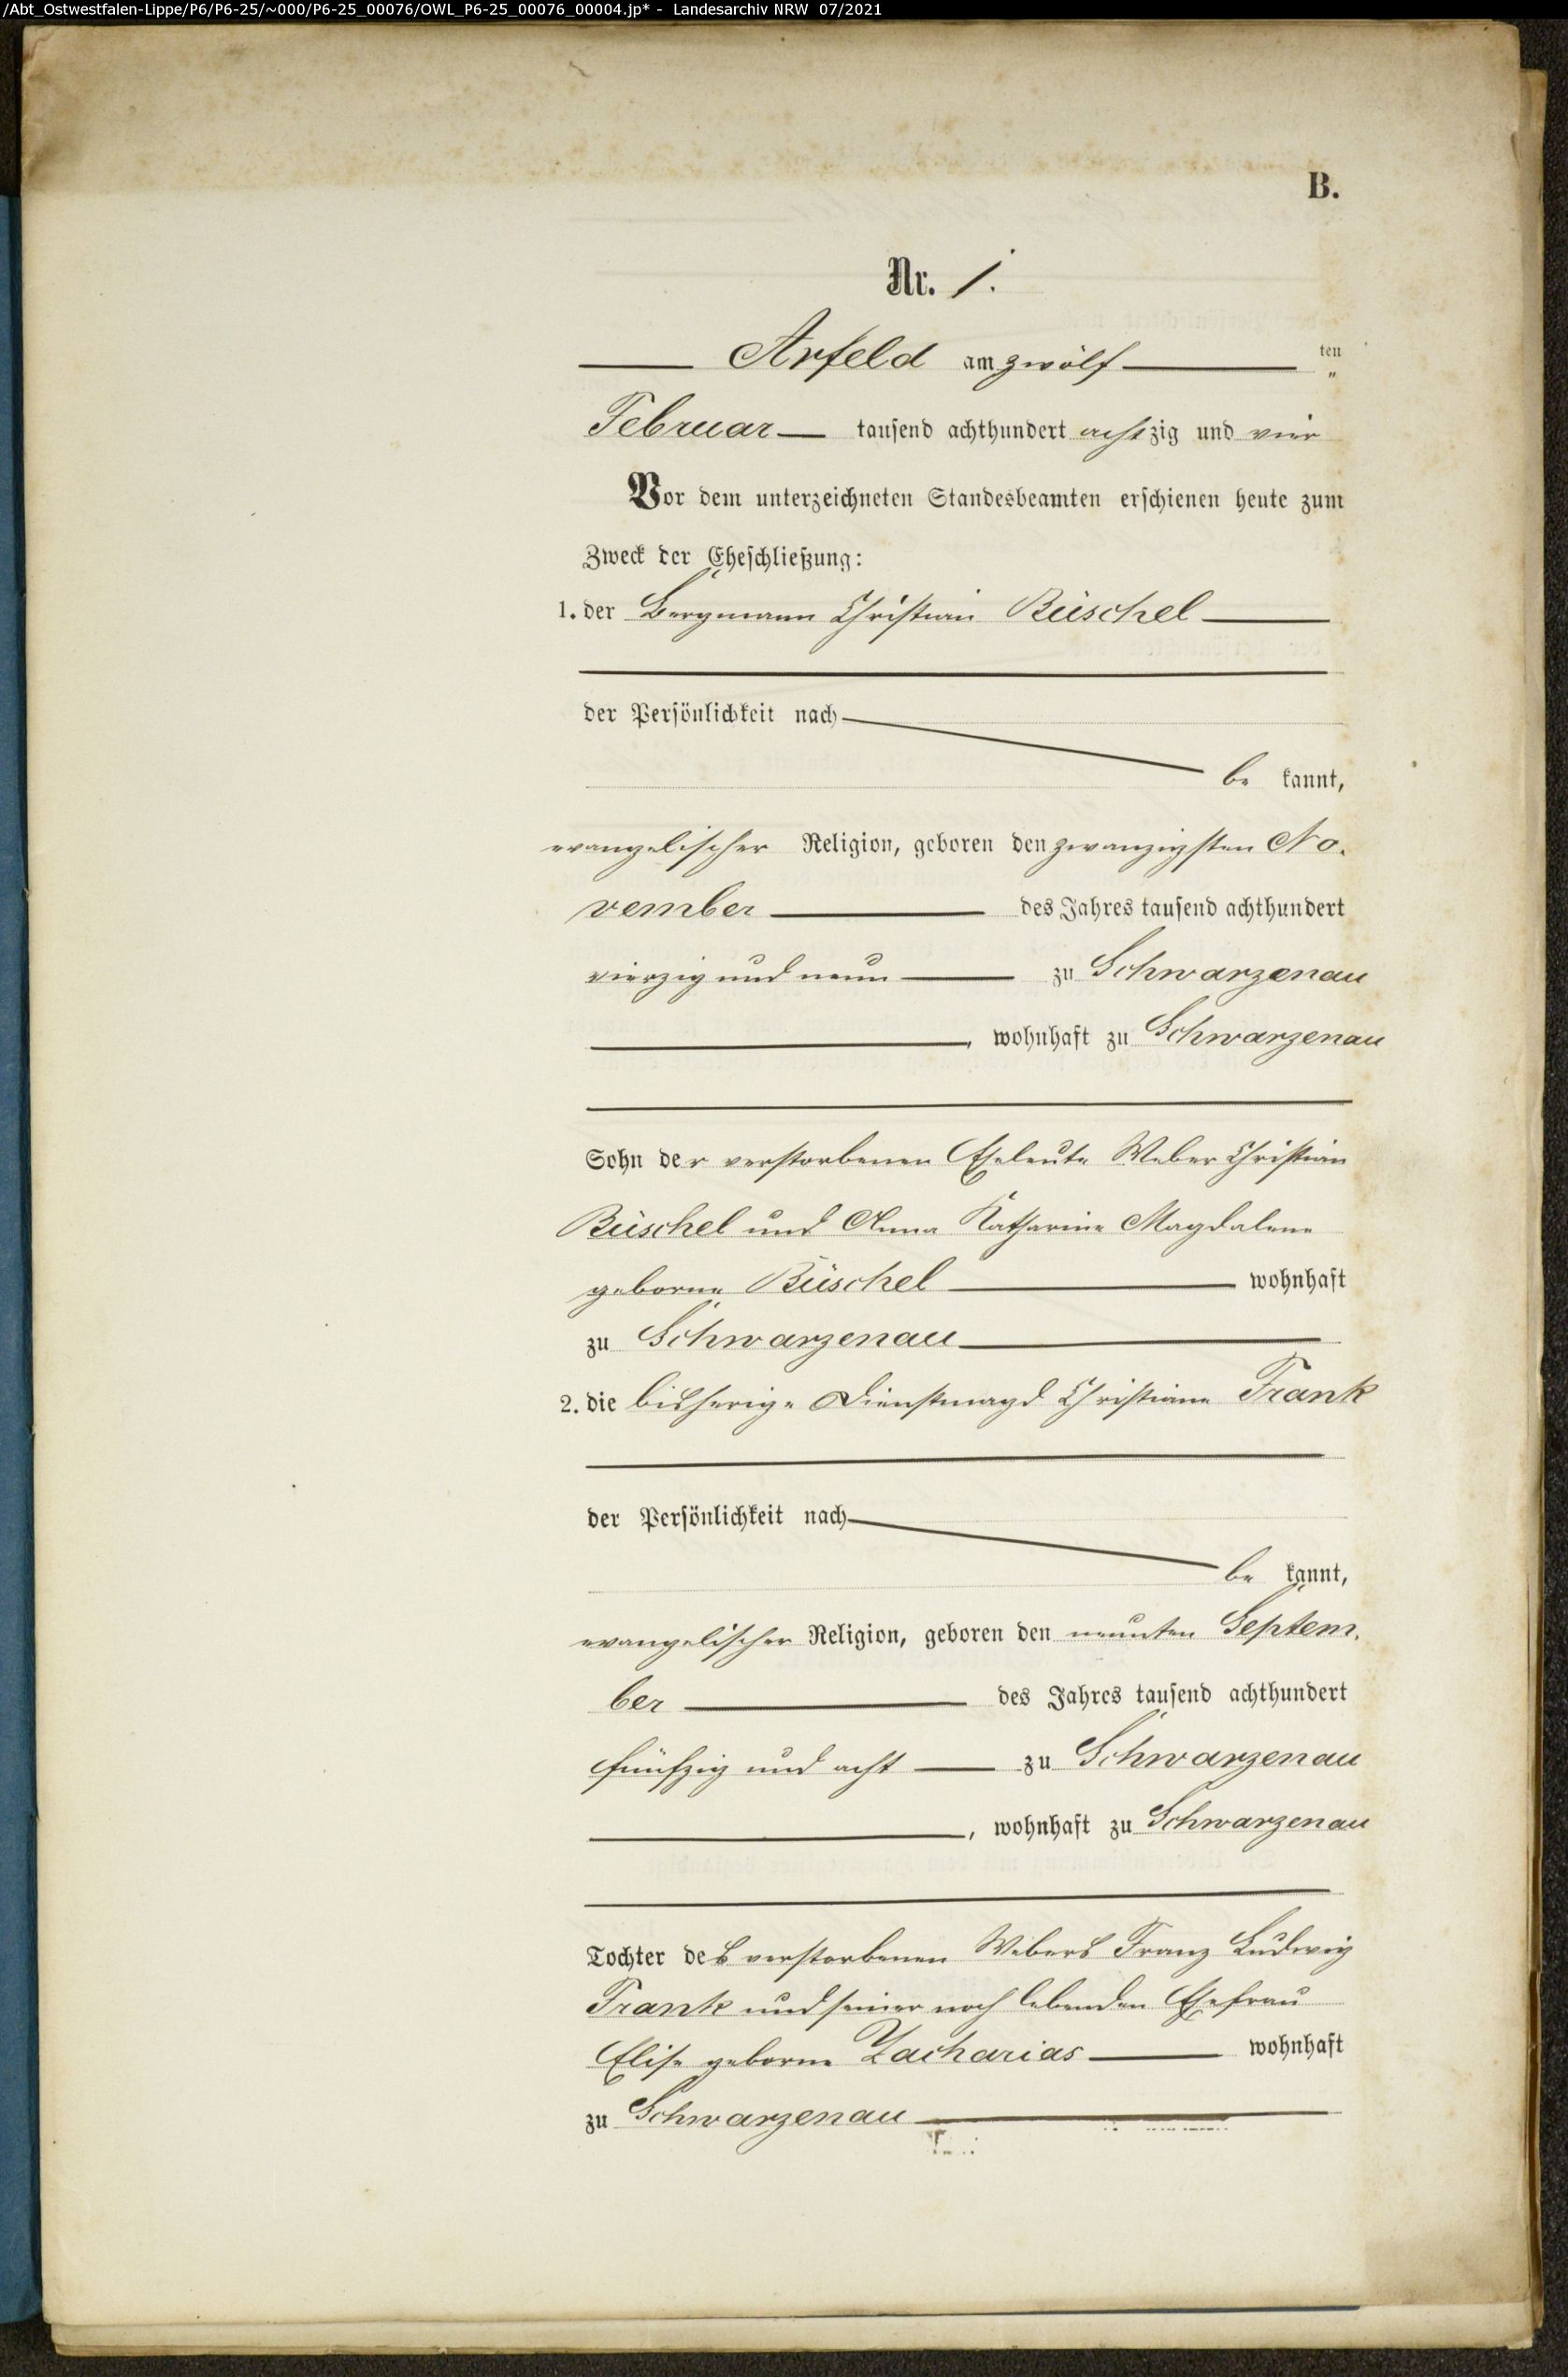 /Abt_Ostwestfalen-Lippe/P6/P6-25/~000/P6-25_00076/OWL_P6-25_00076_00004.jp* - Landesarchiv NRW 07/2021
B.
Nr. 1.
Arfeld am zwölf ten
Februar tausend achthundert achtzig und vier
Vor dem unterzeichneten Standesbeamten erschienen heute zum
Zweck der Eheschließung:
1. der Bergmann Christian Büschel
der Persönlichkeit nach
be kannt,
evangelischer Religion, geboren den zwanzigsten No-
vember des Jahres tausend achthundert
vierzig und neun zu Schwarzenau
, wohnhaft zu Schwarzenau
Sohn der verstorbenen Eheleute Weber Christian
Büschel und Anna Katharine Magdalene
geborne Büschel wohnhaft
zu Schwarzenau
2. die bisherige Dienstmagd Christiane Frank
der Persönlichkeit nach
be kannt,
evangelischer Religion, geboren den neunten Septem-
ber des Jahres tausend achthundert
fünfzig und acht zu Schwarzenau
, wohnhaft zu Schwarzenau
Tochter des verstorbenen Webers Franz Ludwig
Frank und seiner noch lebenden Ehefrau
Elise geborne Zacharias wohnhaft
zu Schwarzenau